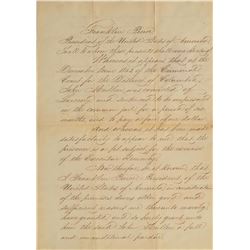 Franklin Pierce
President of the United States of America
To all to whom these presents shall come Greeting
Whereas it appears that at the
December Term 1853 of the Criminal
Court for the District of Columbia,
John was convicted of
Larceny and sentenced to be imprisoned
in the common jail for a period of
months, and to pay a fine of one dollar
And whereas it has been made
satisfactorily to appear to me that the
prisoner is a fit subject for the exercise
of the Executive Clemency;
Now therefore be it Known, that
I Franklin Pierce President of the
United States of America, in consideration
of the premises divers other good and
sufficient reasons me thereunto moving
have granted and do hereby grant unto
him the said John a full
and unconditional pardon